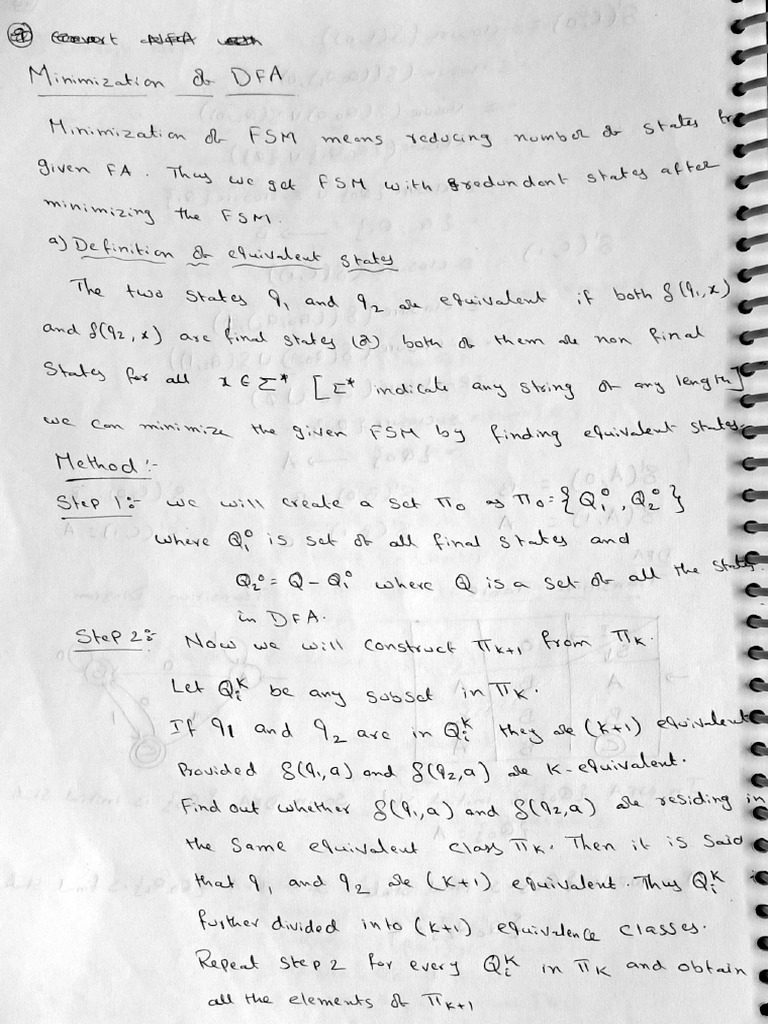 Minimization of DFA
Minimization of FSM means reducing number of states
given FA. Thus we get FSM with redundant states after
minimizing the FSM.
a) Definition of equivalent states
The two states q₁ and q₂ are equivalent if both δ(q₁,x)
and δ(q₂,x) are final states (or) both of them are non final
States for all x ∈ Σ* [Σ* indicate any string of any length]
we can minimize the given FSM by finding equivalent states.
Method:-
Step 1:- we will create a set π₀ as π₀ = {Q₁⁰, Q₂⁰}
where Q₁⁰ is set of all final states and
Q₂⁰ = Q - Q₁⁰ where Q is a set of all the states
in DFA.
Step 2:- Now we will construct πK+1 from πK.
Let QᵢK be any subset in πK.
If q1 and q2 are in QᵢK they are (K+1) equivalent
Provided δ(q₁,a) and δ(q₂,a) are K-equivalent.
Find out whether δ(q₁,a) and δ(q₂,a) are residing in
the same equivalent class πK. Then it is said
that q₁ and q₂ are (K+1) equivalent. Thus QᵢK
further divided into (K+1) equivalence classes.
Repeat Step 2 for every QᵢK in πK and obtain
all the elements of πK+1